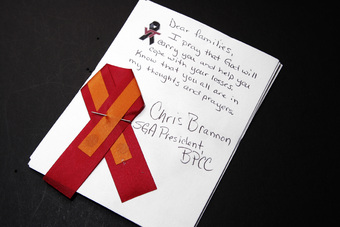 Dear families,
I pray that God will
carry you and help you
cope with your losses.
Know that you all are in
my thoughts and prayers.
Chris Brannon
SGA President,
BPCC